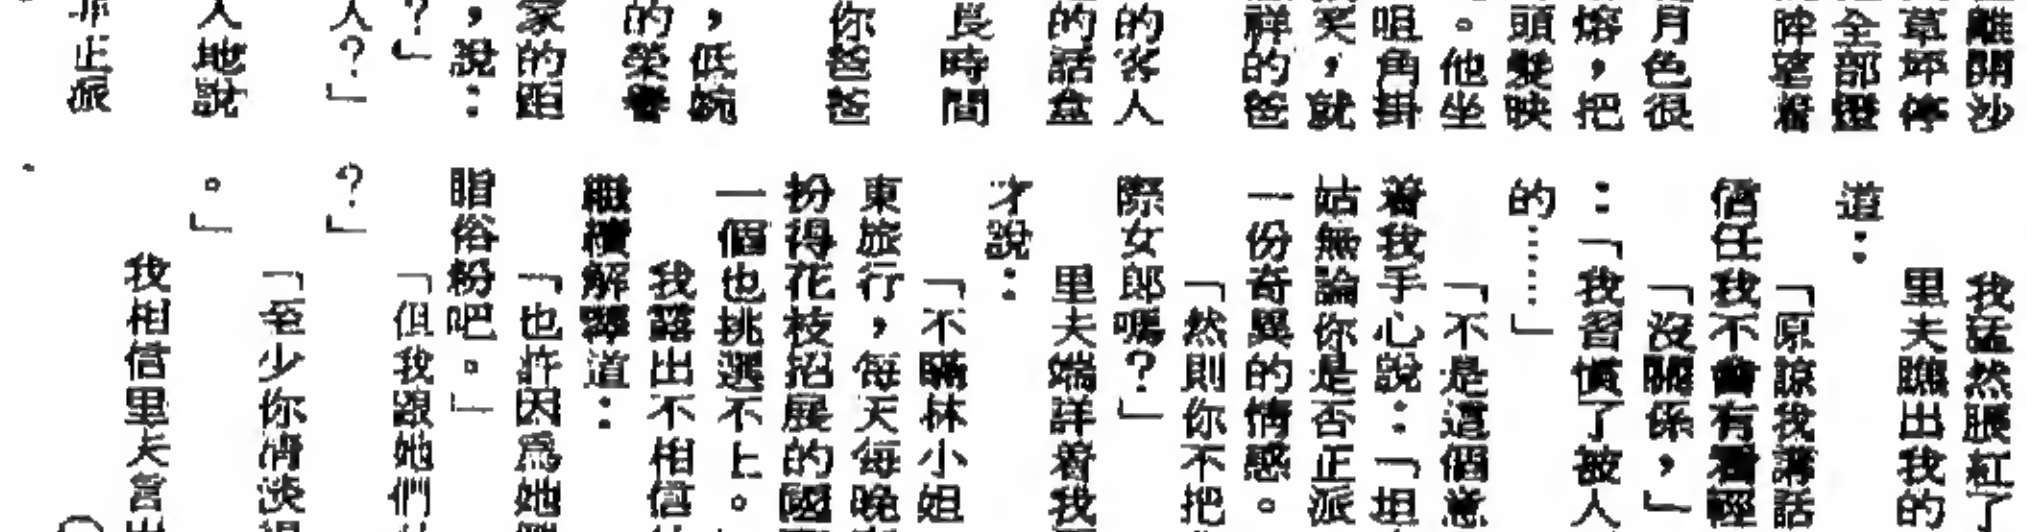 離開沙
草坪停
全部燈
眸望着
月色很
熔，把
頭髮映
。他坐
咀角掛
笑，就
祥的爸
的客人
的話盒
長時間
你爸爸
，低婉
的榮譽
家的距
，說：
？」
人？」
人地說
非正派
我猛然脹紅了
里夫瞧出我的
道：
「原諒我講話
信任我不會有看輕
「沒關係，」
：「我習慣了被人
的……」
「不是這個意
着我手心說：「坦
姑無論你是否正派
一份奇異的情感。
「然則你不把
際女郎嗎？」
里夫端詳着我
才說：
「不瞞林小姐
東旅行，每天每晚
扮得花枝招展的國
一個也挑選不上。
我露出不相信
繼續解釋道：
「也許因爲她
脂俗粉吧。」
「但我跟她們
？」
「至少你清淡
。」
我相信里夫